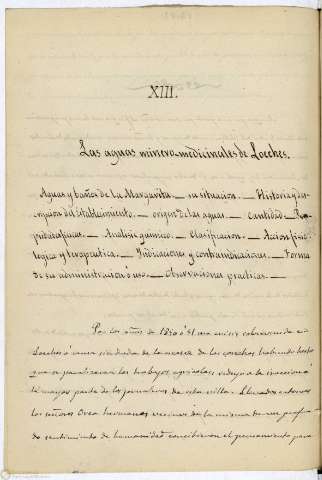 XIII.
Las aguas minero-medicinales de Loeches.
Aguas y baños de La Margarita. — su situacion. — Historia y des-
cripcion del establecimiento. — origen de las aguas. — Cantidad. — Pro-
piedades fisicas. — Analisis quimico. — Clasificacion. — Accion fisio-
logica y terapeutica. — Indicaciones y contraindicaciones. — Forma
de su administracion ó uso. — Observaciones practicas. —
Por los años de 1850 ó 51 una crisis sobrevenida en
Loeches á causa sin duda de la escasez de las cosechas, habiendo hecho
que se paralizaran los trabajos agricolas redujo á la inaccion á
la mayor parte de los jornaleros de esta villa. Llevados entonces
los señores Orea hermanos vecinos de la misma de un profun-
do sentimiento de humanidad concibieron el pensamiento para